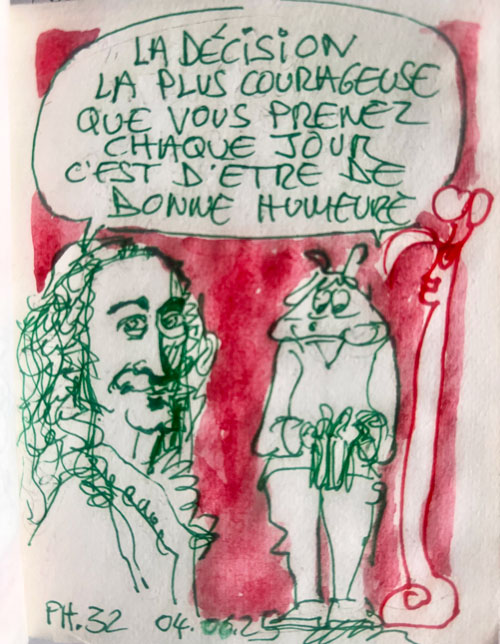 LA DÉCISION
LA PLUS COURAGEUSE
QUE VOUS PRENEZ
CHAQUE JOUR
C'EST D'ETRE DE
BONNE HUMEURE
PH.32 04.06.25